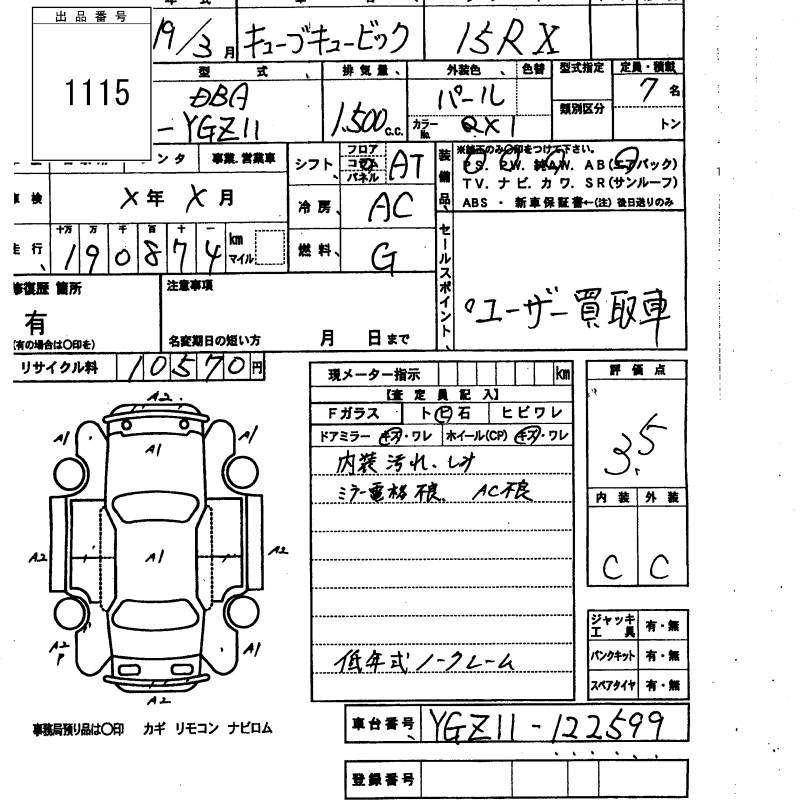 出品番号
1115
年 式
19/3月 キューブキュービック 15RX
型 式 排気量、 外装色 色替 型式指定 定員・積載
DBA
-YGZ11 1,500c.c. パール 7名
カラーNo. QX1 類別区分 トン
事業、営業車
シフト、 フロア コラム パネル AT
装備品、
※純正のみ○印をつけて下さい。
P S. P W. 純A W. A B(エアバック)
T V. ナ ビ. カ ワ. S R(サンルーフ)
A B S ・ 新車保証書←(注)後日送りのみ
車 検 X年 X月
冷房、 AC
走行、 十万 万 千 百 十 一 km マイル
190874
燃料、 G
セールスポイント、
○ユーザー買取車
修復歴 箇所
有
(有の場合は○印を)
注意事項
名変期日の短い方 月 日まで
リサイクル料 10570円
現メーター指示 km
【査 定 員 記 入】
Fガラス ト ビ 石 ヒ ビ ワ レ
ドアミラー キズ・ワレ ホイール(CP) キズ・ワレ
内装 汚れ、
ミラー電格 不良、 AC不良
低年式 ノークレーム
評 価 点
3.5
内 装 外 装
C C
A2
A1 A1
A1
A2 A1 A2
A2
P
A1
A2
ジャッキ
工 具 有・無
パンクキット 有・無
スペアタイヤ 有・無
事務局預り品は○印 カギ リモコン ナビロム
車台番号、 YGZ11-122599
登録番号